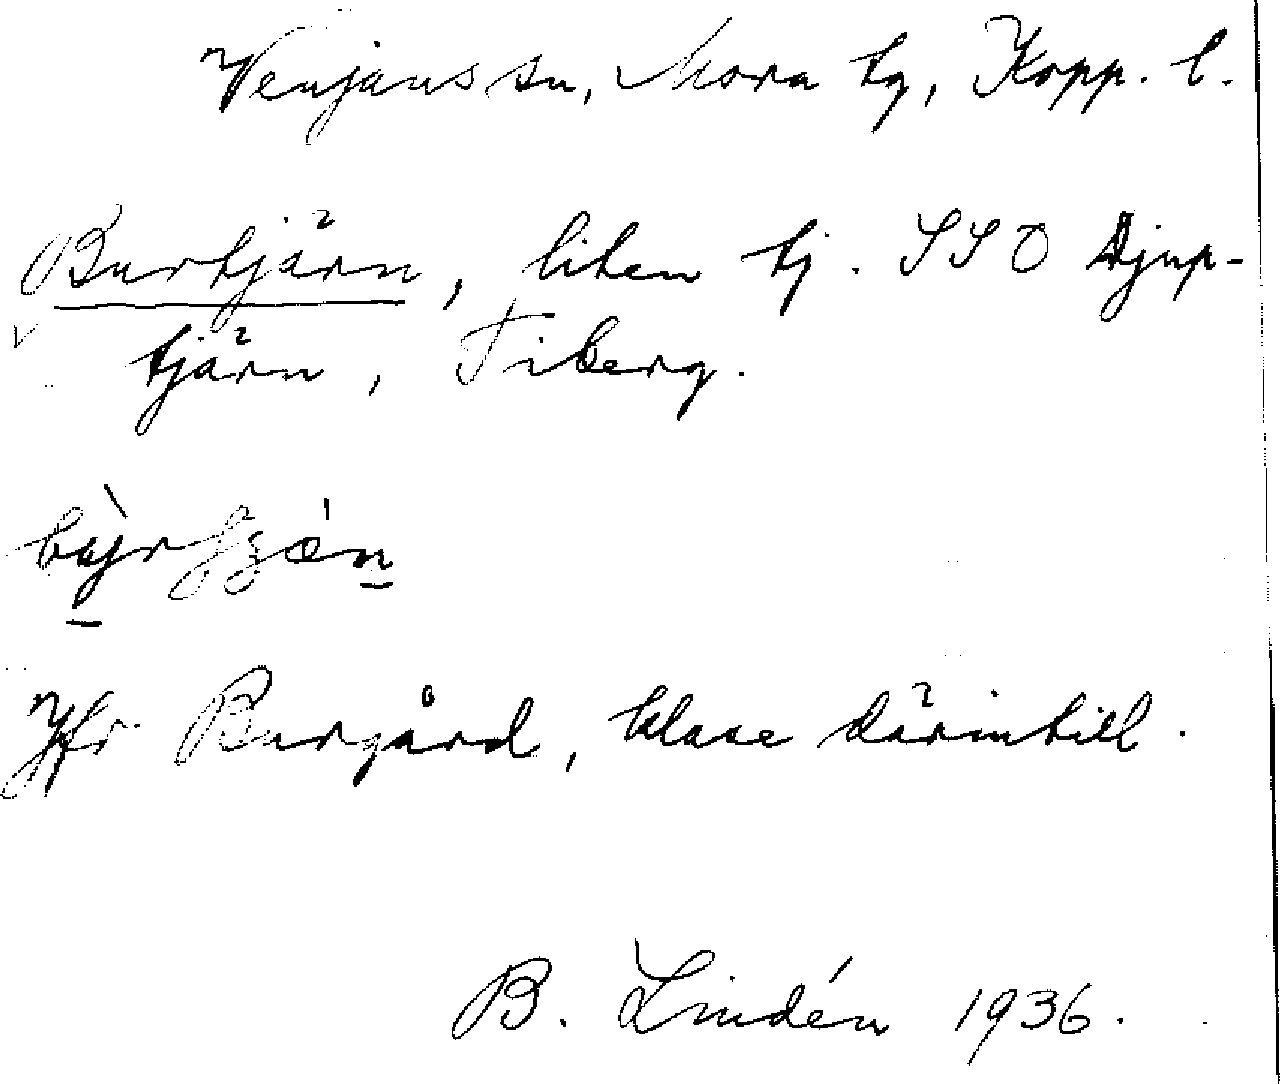 Venjans sn, Mora tg, Kopp. l.
Burtjärn, liten tj. SSO Djup-
tjärn, Fiberg.
Jfr Burgård, klase därintill.
B. Lindén 1936.